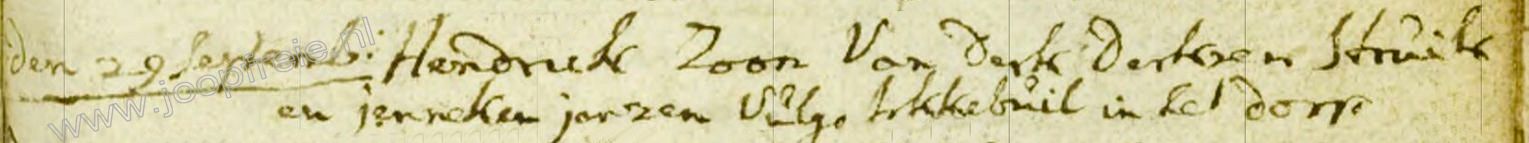 den 29 Septemb: Hendrick Zoon Van Derk Derksen Struik
en jenneken janzen Vulgo in het dorp
www.joopfreie.nl